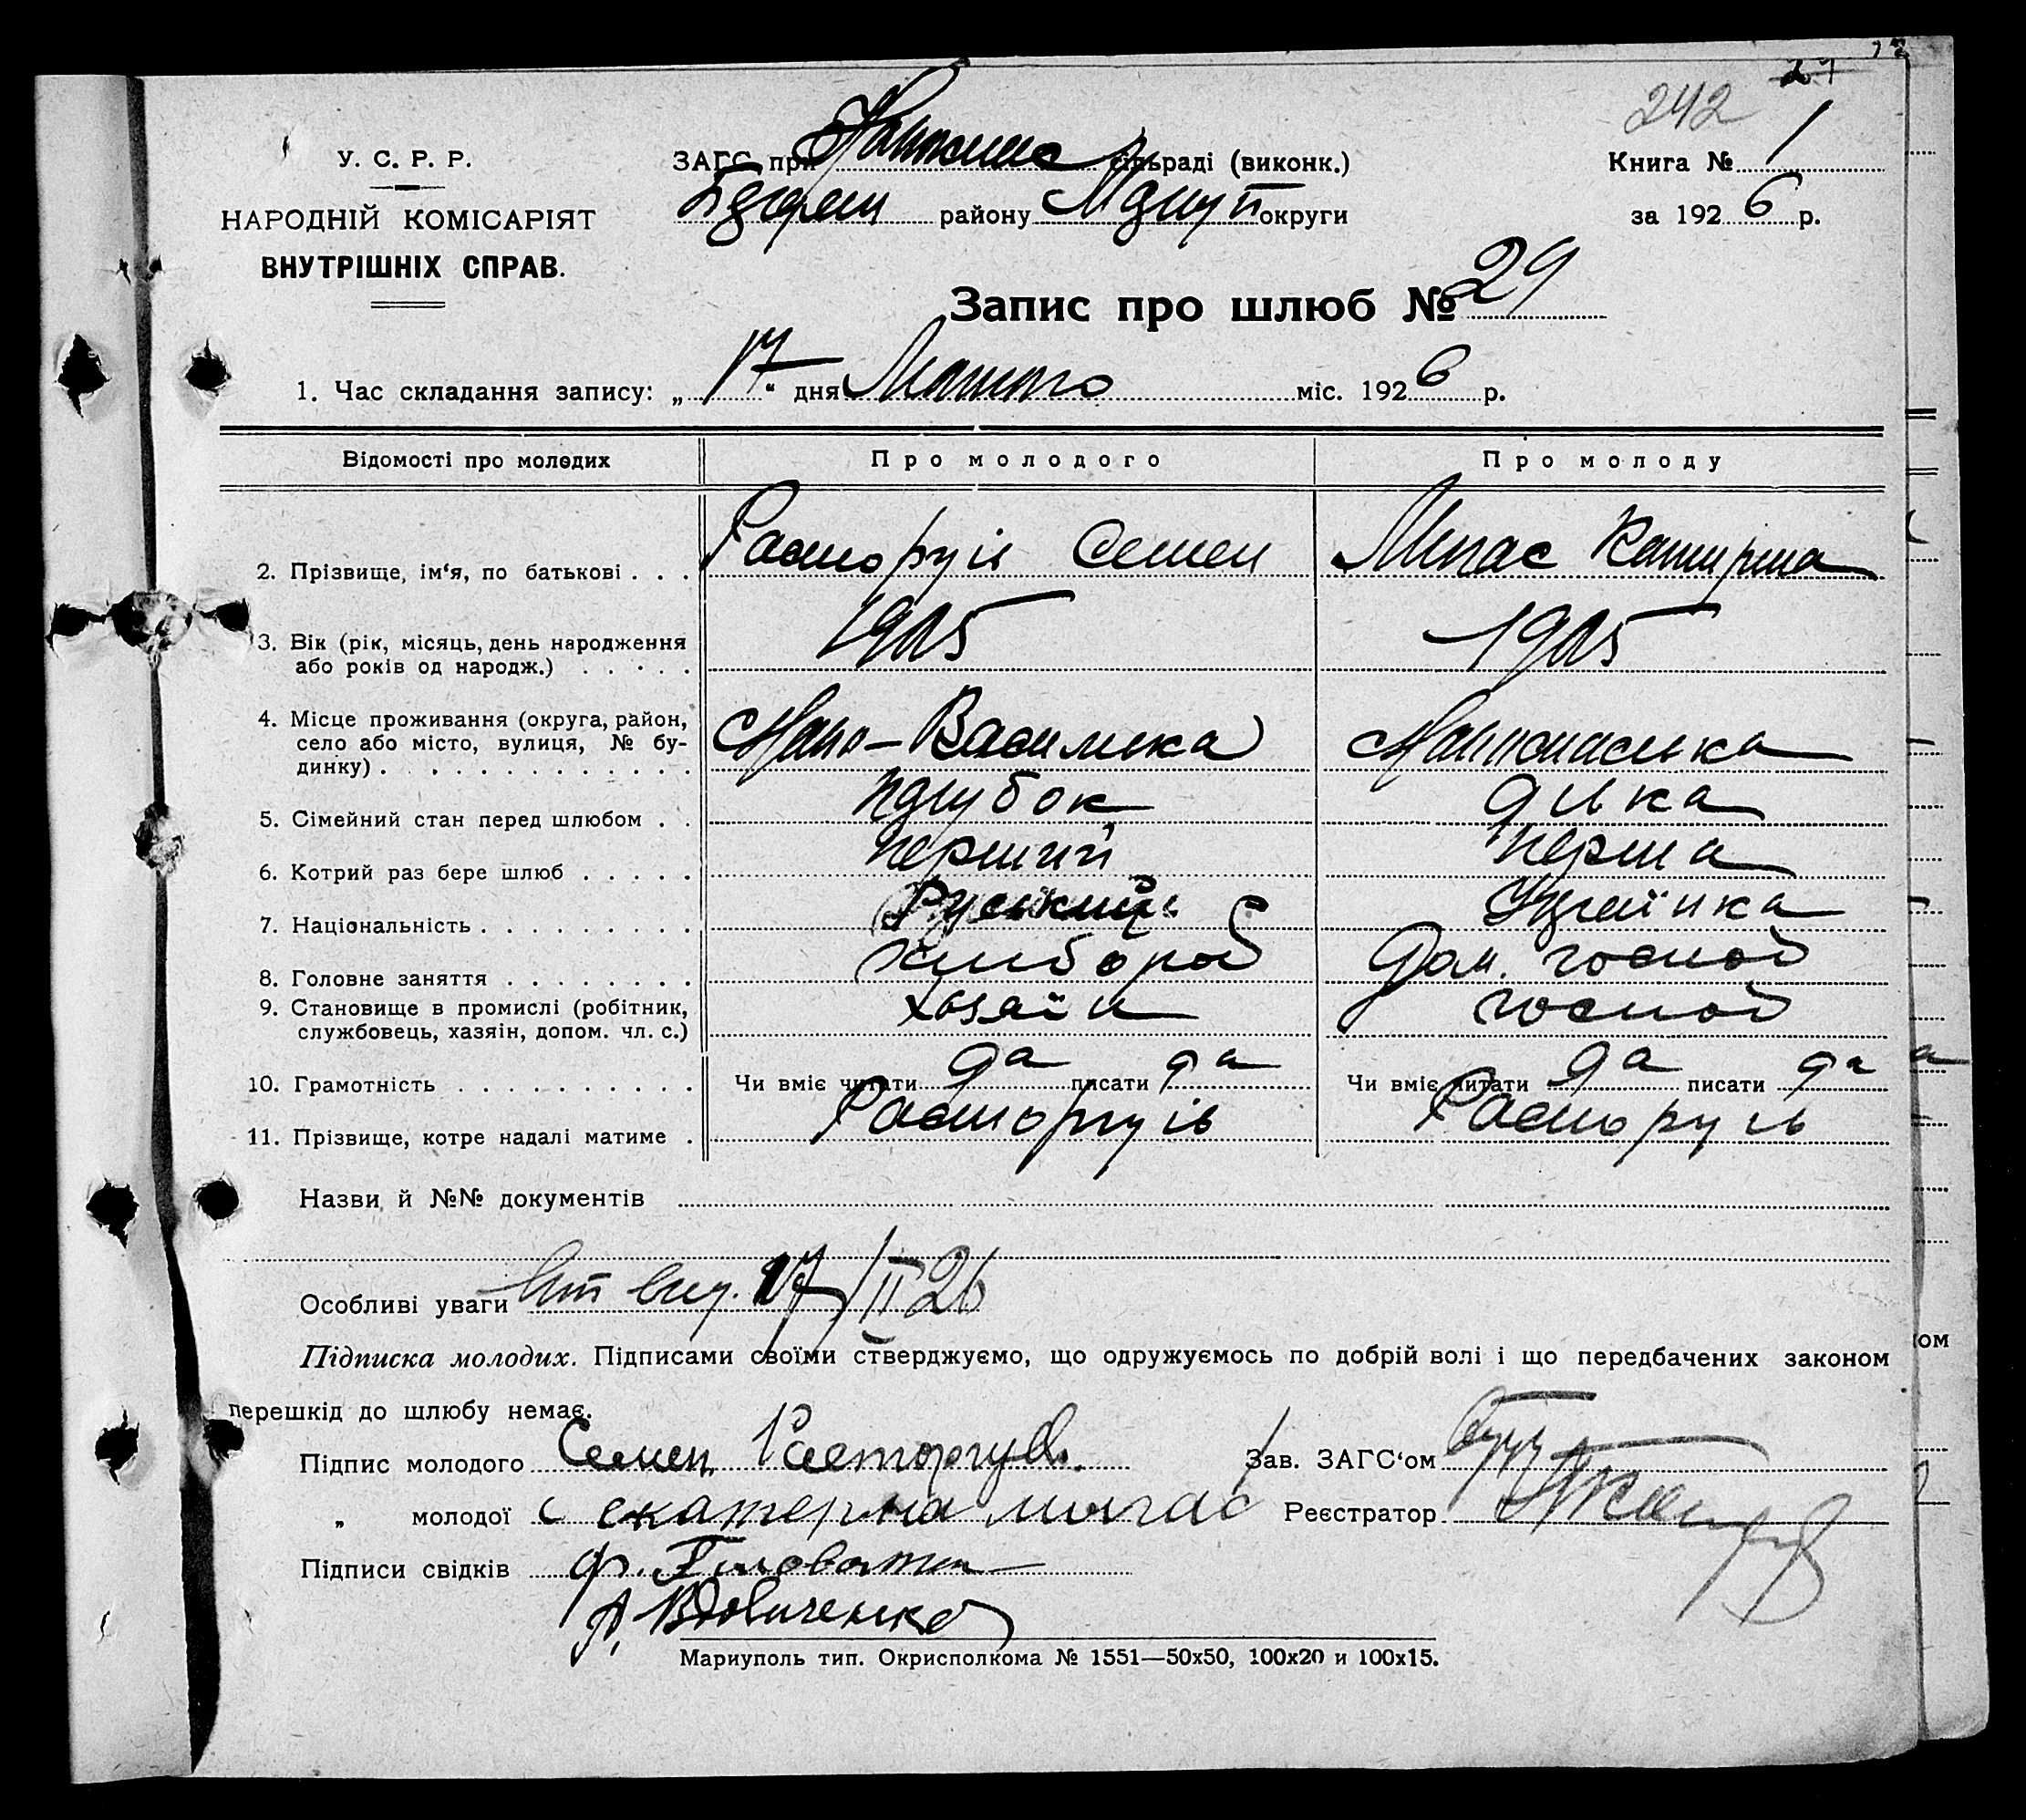 242 29
У. С. Р. Р.
НАРОДНІЙ КОМІСАРІЯТ
ВНУТРІШНІХ СПРАВ.
ЗАГС при сільраді (виконк.)
району округи
Книга № 1
за 1926 р.
Запис про шлюб № 29
1. Час складання запису: „17“ дня Лютого міс. 1926 р.
Відомості про молодих Про молодого Про молоду
2. Прізвище, ім‘я, по батькові . . . Расторгуів Семен Мигас Катирина
3. Вік (рік, місяць, день народження
або років од народж.) . . . . . 1905 1905
4. Місце проживання (округа, район,
село або місто, вулиця, № бу-
динку) . . . . . . . . . . . . Ново-Василивка
5. Сімейний стан перед шлюбом . . парубок дівка
6. Котрий раз бере шлюб . . . . . перший перша
7. Національність . . . . . . . . . Руський Украінка
8. Головне заняття . . . . . . . . хлибороб Дом. господ
9. Становище в промислі (робітник,
службовець, хазяін, допом. чл. с.) хозяїн господ
10. Грамотність . . . . . . . . . . Чи вміє читати да писати да Чи вміє читати да писати да
11. Прізвище, котре надалі матиме . Расторгуів Расторгуів
Назви й №№ документів
Особливі уваги вид. 17/II 26
Підписка молодих. Підписами своїми стверджуємо, що одружуємось по добрій волі і що передбачених законом
перешкід до шлюбу немає.
Підпис молодого Семен Расторгуев. Зав. ЗАГС‘ом
„ молодої екатерина мигас Реєстратор
Підписи свідків ф.
А. Вдовиченко
Мариуполь тип. Окрисполкома № 1551—50х50, 100х20 и 100х15.